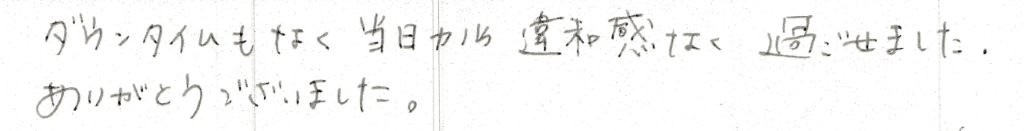 ダウンタイムもなく 当日から 違和感なく 過ごせました.
ありがとうございました。